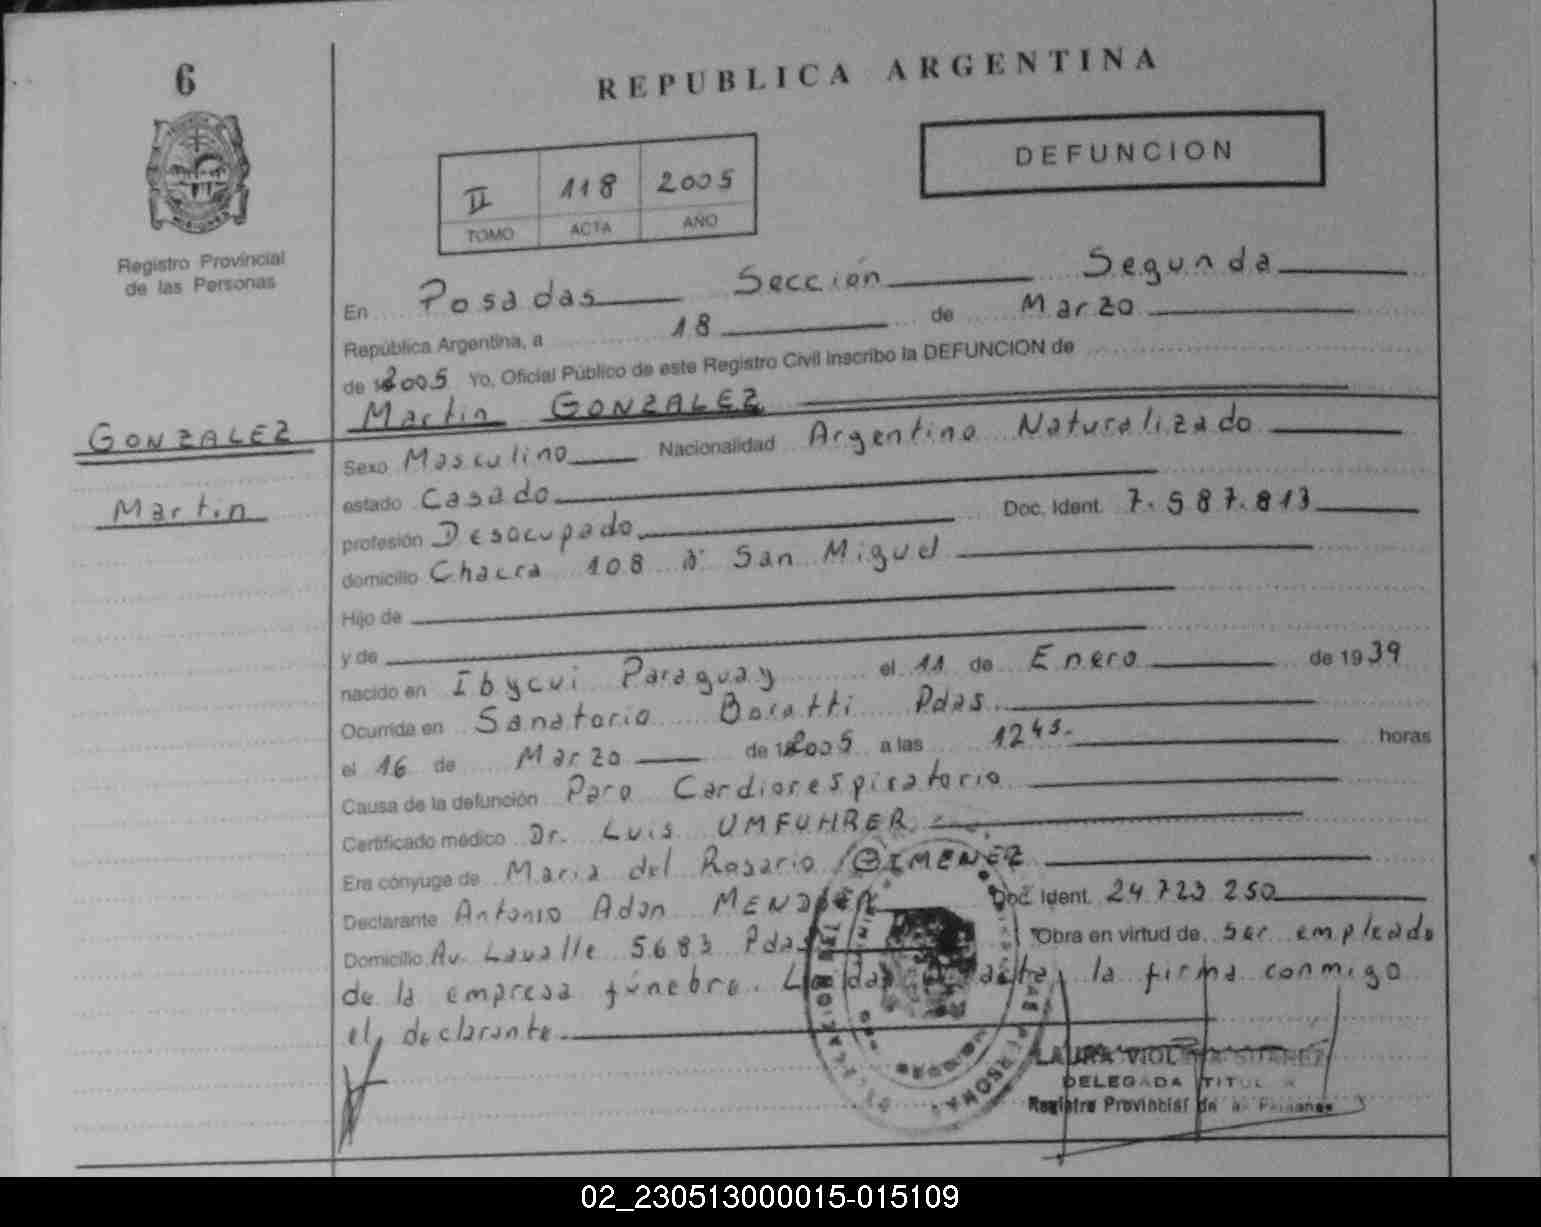 6
REPUBLICA ARGENTINA
DEFUNCION
II 118 2005
TOMO ACTA AÑO
MISIONES
Registro Provincial
de las Personas
En Posadas Sección Segunda
República Argentina, a 18 de Marzo
de 2005 Yo, Oficial Público de este Registro Civil Inscribo la DEFUNCION de
Martin GONZALEZ
GONZALEZ
Martin
Sexo Masculino Nacionalidad Argentino Naturalizado
estado Casado
profesión Desocupado Doc. Ident. 7.587.813
domicilio Chacra 108 San Miguel
Hijo de
y de
nacido en Ibycui Paraguay el 11 de Enero de 1939
Ocurrida en Sanatorio Boratti Pdas.
el 16 de Marzo de 2005 a las 1245. horas
Causa de la defunción Paro Cardiorespiratorio
Certificado médico Dr. Luis UMFUHRER
Era cónyuge de Maria del Rosario GIMENEZ
Declarante Antonio Adan Doc. Ident. 24.723.250
Domicilio Av. Lavalle 5683 Pdas Obra en virtud de ser empleado
de la empresa fúnebre. acta, la firma conmigo
el declarante
LAURA VIOLETA SUAREZ
DELEGADA TITULAR
Registro Provincial de las Personas
02_230513000015-015109